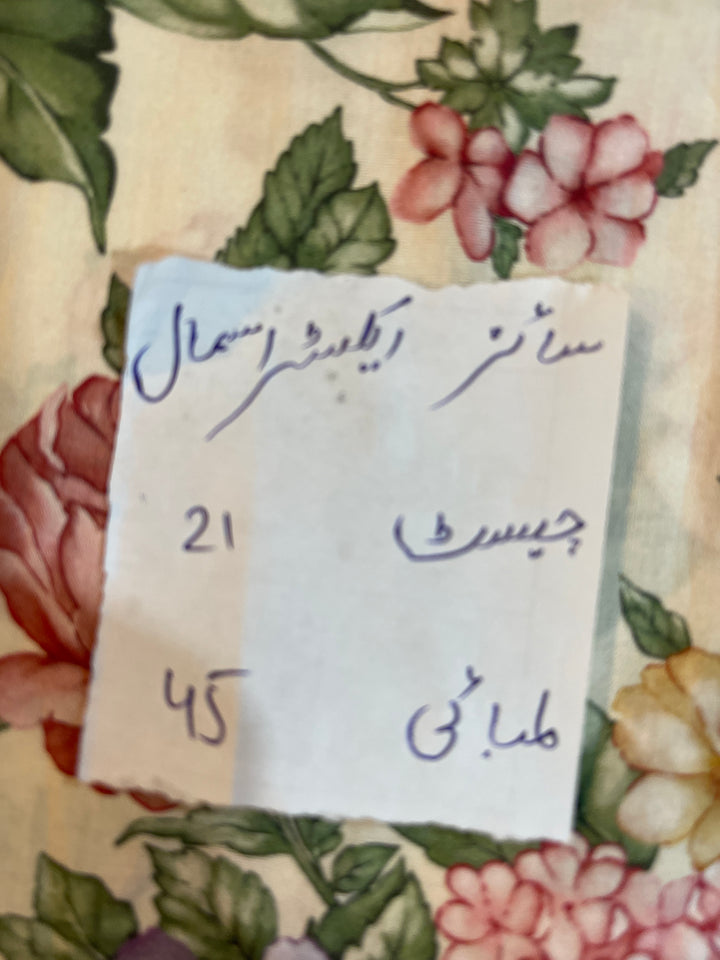 سائز ایکسٹرا سمال
چیسٹ 21
لمبائی 45